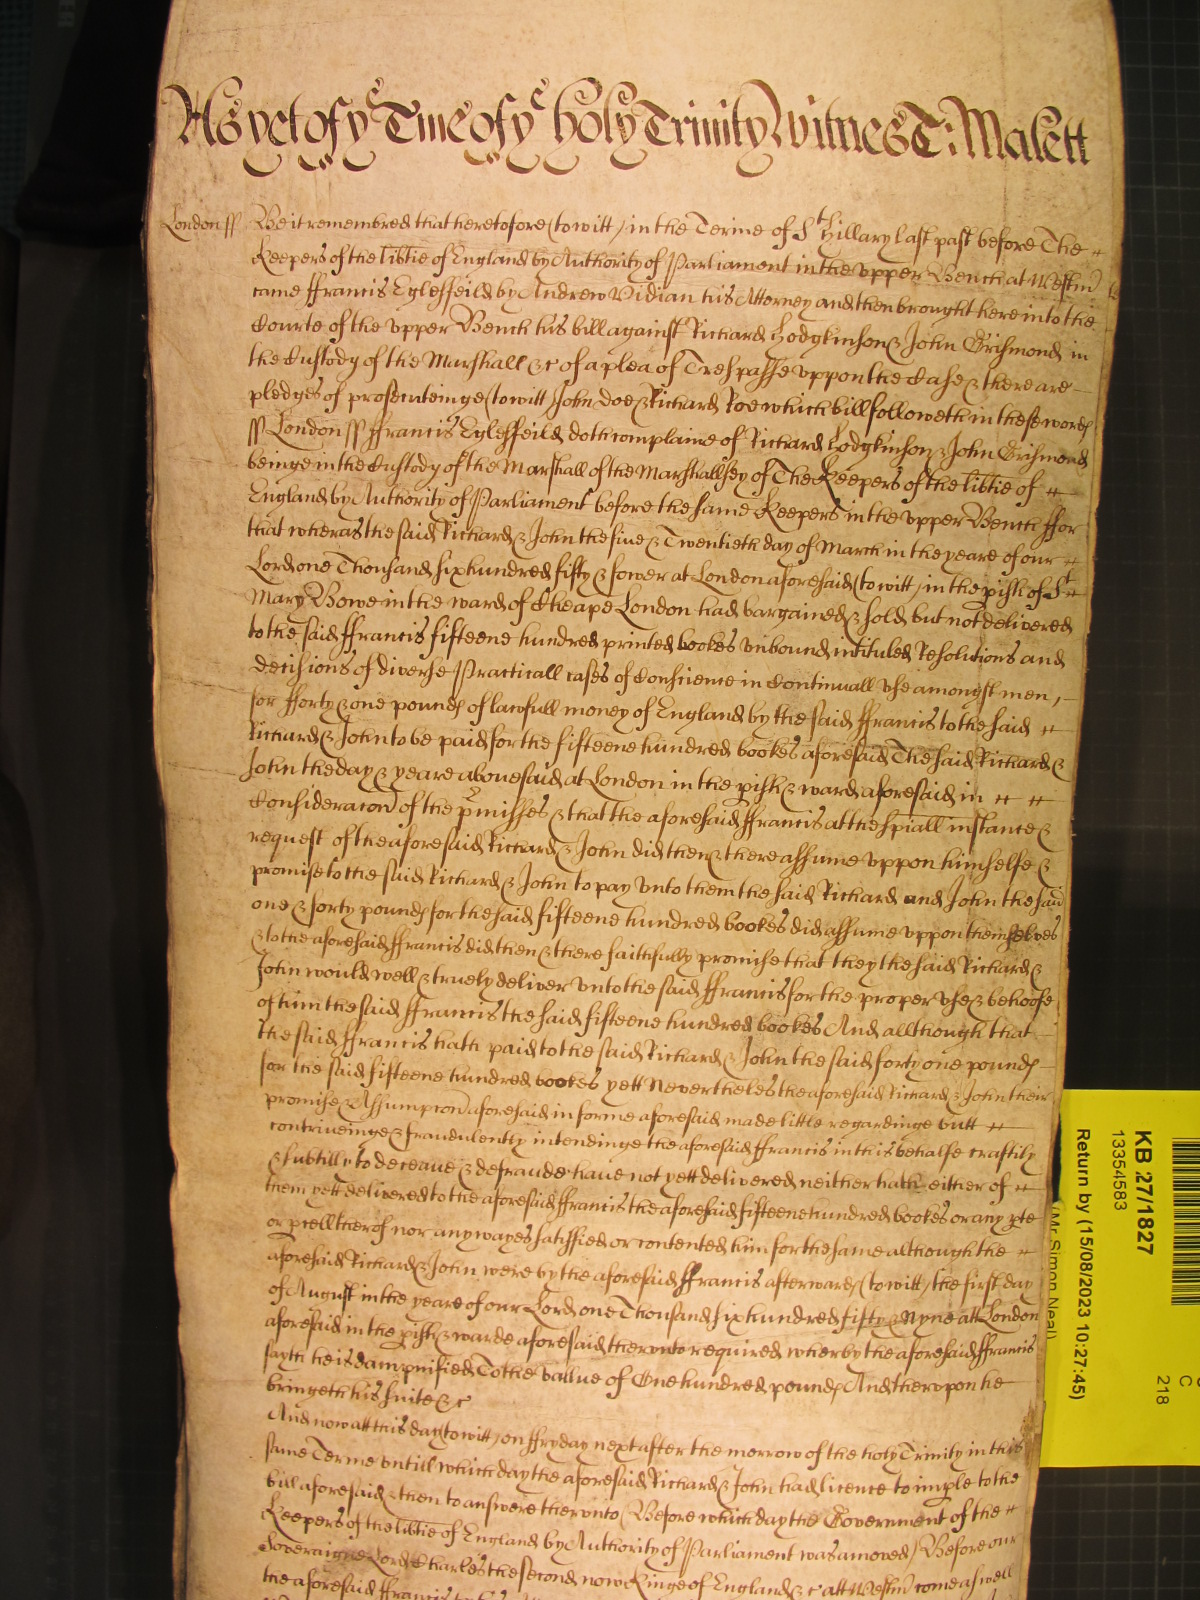 As yet of ye Tme of ye holy Trinity witnes T: Malett
London ss Be it remembred that heretofore (to witt) in the Terme of St Hillary last past before The
Keepers of the libtie of England by Authority of Parliament in the vpper Bench at Westm
came ffrancis Eglesfeild by Andrew Vidian his Attorney and then brought here into the
Courte of the vpper Bench his bill against Richard Hodgkinson & John Grismond in
the Custody of the Marshall &c of a plea of Trespasse vppon the Case & there are
pledges of prosecuteinge (to witt) John Doe & Richard Roe which bill followeth in these words
ss London ss ffrancis Eglesfeild doth complaine of Richard Hodgkinson & John Grismond
beinge in the Custody of the Marshall of the Marshallsey of The Keepers of the libtie of
England by Authority of Parliament before the same Keepers in the vpper Bench ffor
that wheras the said Richard & John the five & Twentieth day of March in the yeare of our
Lord one Thousand six hundred fifty & fower at London aforesaid (to witt) in the pish of St
Mary Bowe in the ward of Cheape London had bargained & sold but not delivered
to the said ffrancis fifteene hundred printed bookes vnbound intituled Resolutions and
decisions of diverse Practicall cases of Conscience in Continuall vse amongst men,
for fforty & one pounds of lawfull money of England by the said ffrancis to the said
Richard & John to be paid for the fifteene hundred bookes aforesaid The said Richard &
John the day & yeare abovesaid at London in the pish & ward aforesaid in
Consideracon of the pmisses & that the aforesaid ffrancis at the spiall instance &
request of the aforesaid Richard & John did then & there assume vppon himselfe &
promise to the said Richard & John to pay vnto them the said Richard and John the said
one & forty pounds for the said fifteene hundred bookes did assume vppon themselves
& to the aforesaid ffrancis did then & there faithfully promise that they the said Richard &
John would well & truely deliver vnto the said ffrancis for the proper vse & behoofe
of him the said ffrancis the said fifteene hundred bookes And allthough that
the said ffrancis hath paid to the said Richard & John the said forty one pounds
for the said fifteene hundred bookes yett Nevertheles the aforesaid Richard & John their
promise & Assumpcon aforesaid in forme aforesaid made little regardinge butt
contriveinge & fraudulently intendinge the aforesaid ffrancis in this behalfe craftily
& subtilly to deceave & defraude have not yett delivered neither hath either of
them yett delivered to the aforesaid ffrancis the aforesaid fifteene hundred bookes or any pte
or pcell therof nor any wayes satisfied or contented him for the same although the
aforesaid Richard & John were by the aforesaid ffrancis afterwards (to witt) the first day
of August in the yeare of our Lord one Thousand six hundred fifty & Nyne att London
aforesaid in the pish & warde aforesaid thervnto required wherby the aforesaid ffrancis
sayth he is dampnified To the vallue of One hundred pounds And thervpon he
bringeth his suite &c
And now att this day (to witt) on ffryday next after the morrow of the holy Trinity in this
same Terme vntill which day the aforesaid Richard & John had licence to imple to the
bill aforesaid & then to answere thervnto (Before which day the Government of the
Keepers of the libtie of England by Authority of Parliament was amoved) Before our
Soveraigne Lord Charles the second now Kinge of England &c att Westm come as well
the aforesaid ffrancis
KB 27/1827
13354583
Return by (15/08/2023 10:27:45)
(Mr Simon Neal)
C
218